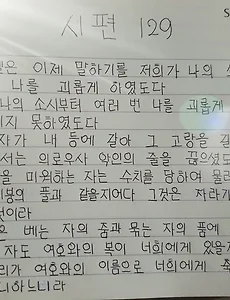 시편 129
은 이제 말하기를 저희가 나의 소
나를 괴롭게 하였도다
나의 소시부터 여러 번 나를 괴롭게
기지 못하였도다
자가 내 등에 갈아 그 고랑을 길
서는 의로우사 악인의 줄을 끊으셨도
을 미워하는 자는 수치를 당하여 물러
붕의 풀과 같을지어다 그것은 자라기
것이라
은 베는 자의 줌과 묶는 자의 품에
자도 여호와의 복이 너희에게 있을지
리가 여호와의 이름으로 너희에게 축
하노니라